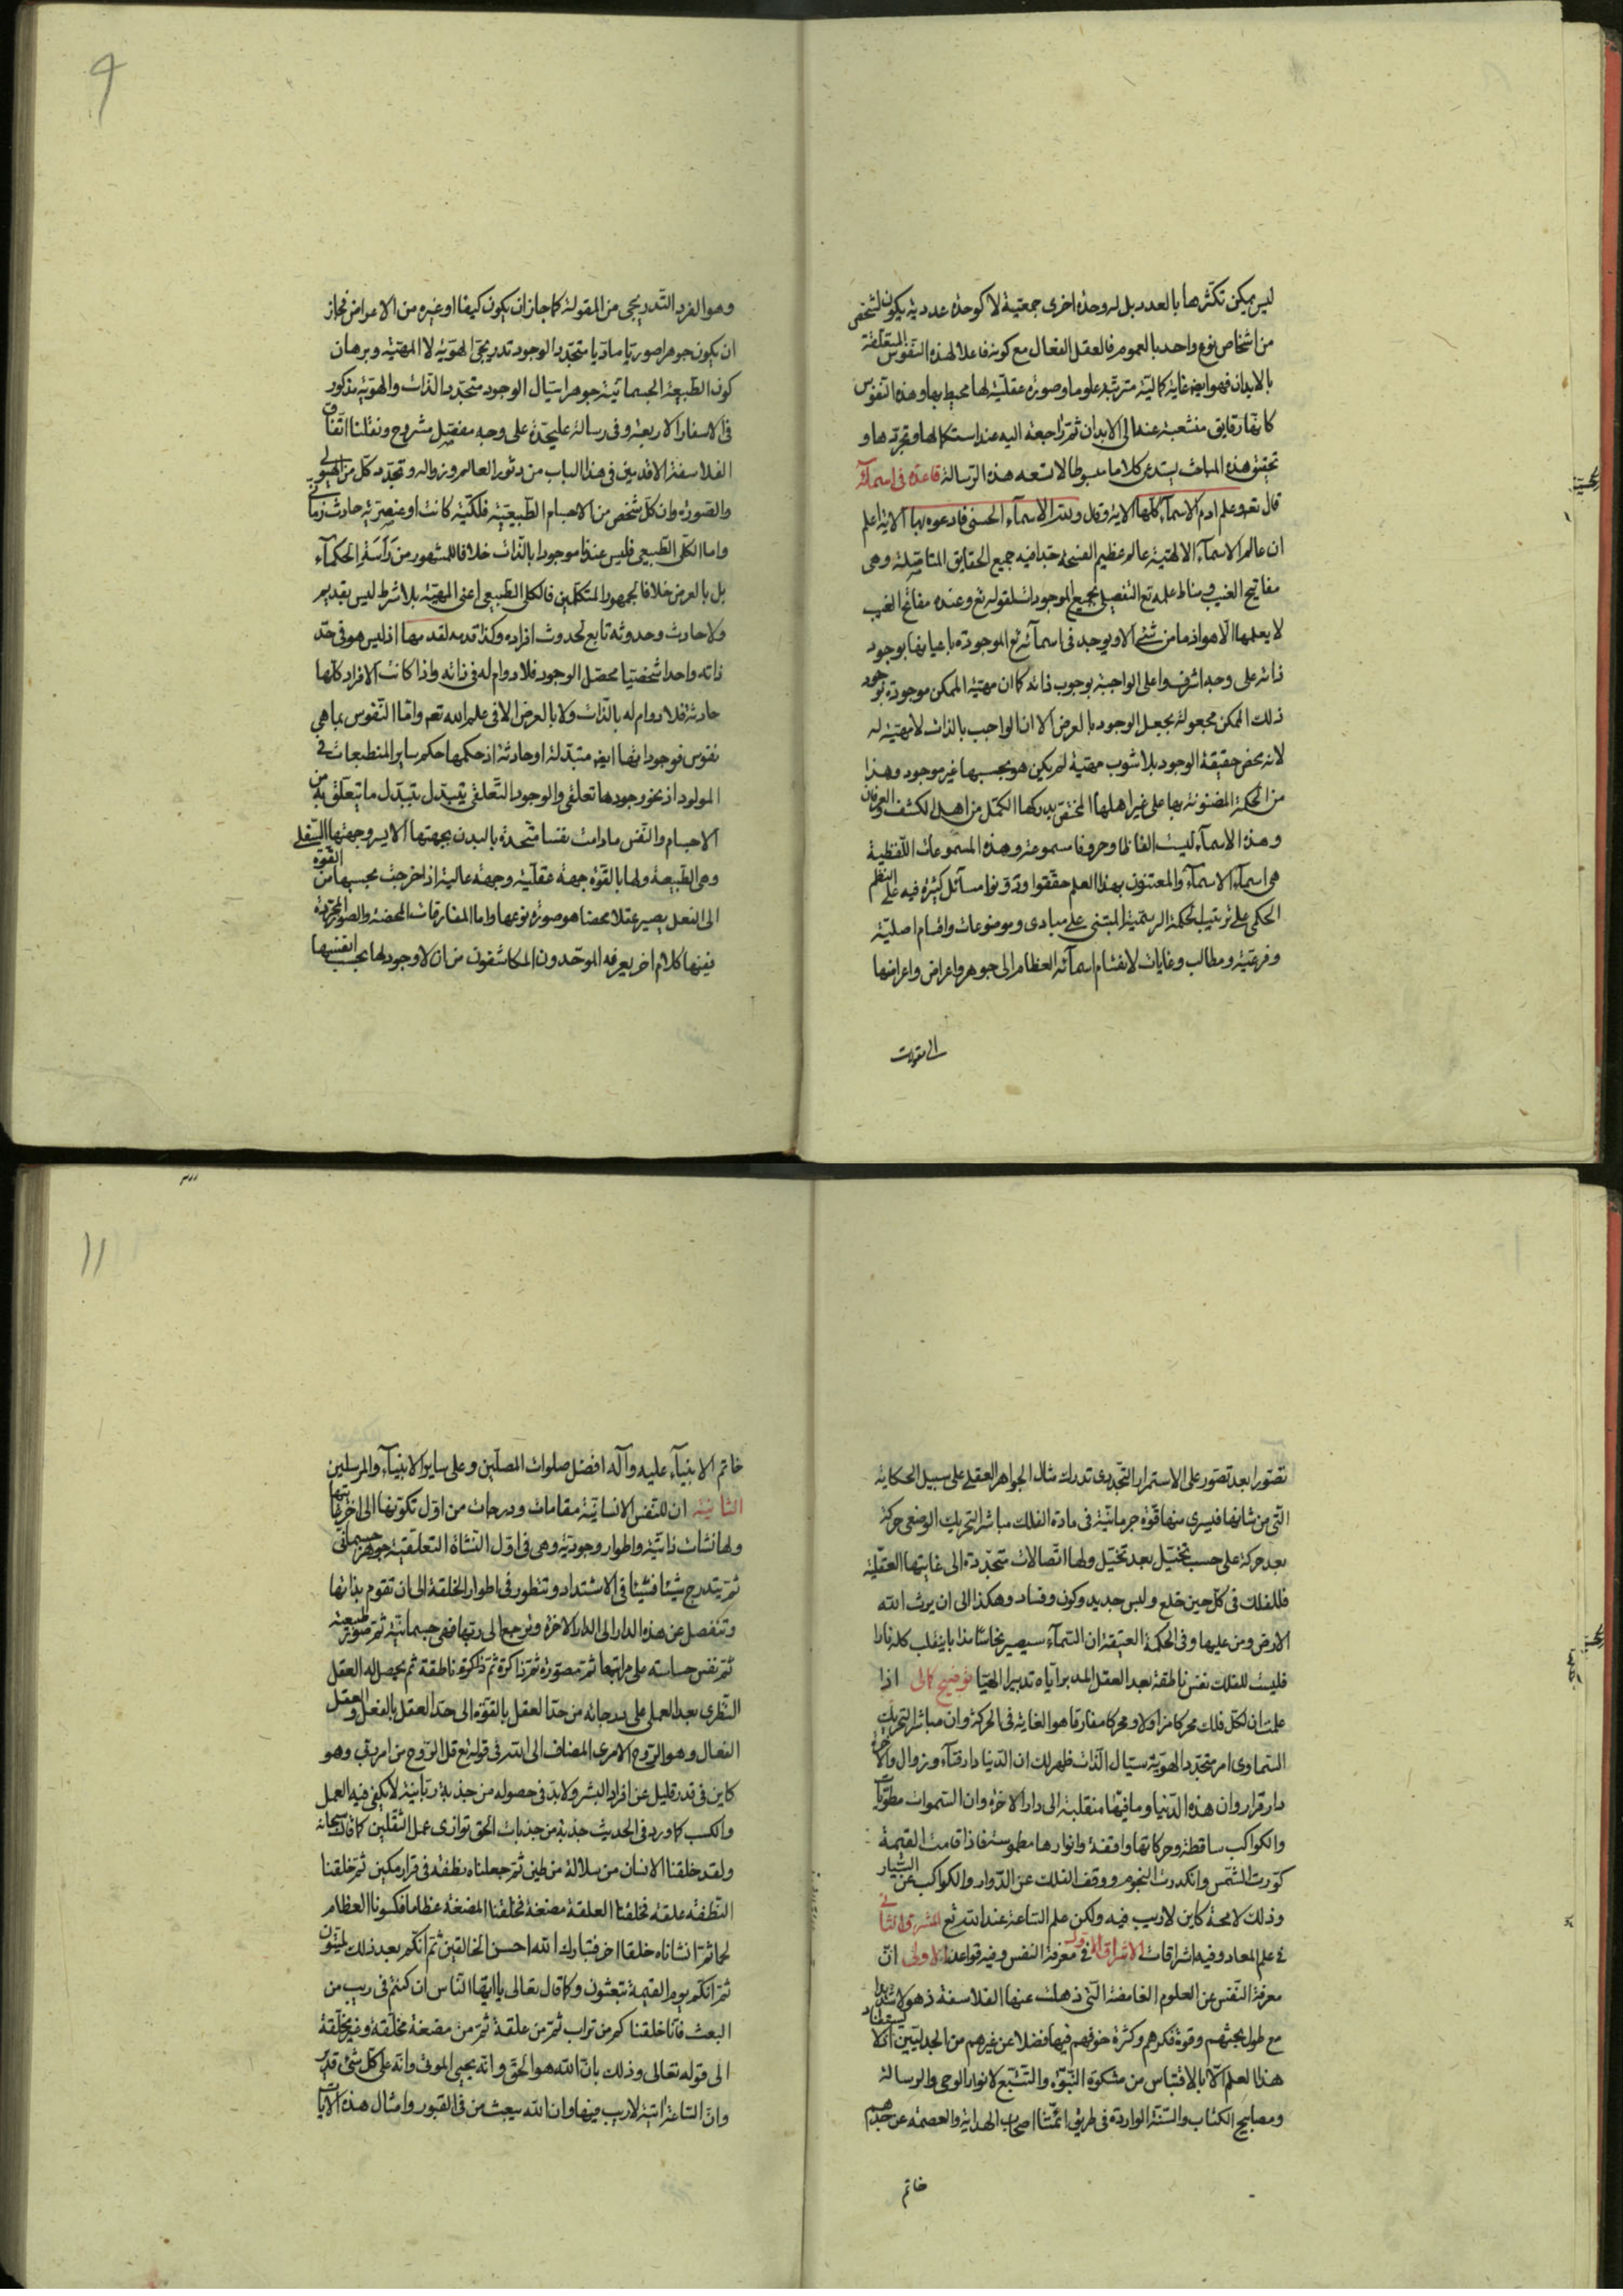 ليس يمكن تكثرها بالعدد بل له وحدة اخرى جمعية لا كوحدة عددية يكون لشخص
من اشخاص نوع واحد بالعموم فالعقل الفعال مع كونه فاعلا لهذه النفوس المتعلقة
بالابدان فهو ايضا غاية كمالية مترتبة عليها وصورة عقلية لها محيط بها وهذه النفوس
كانها رقايق منشعبة عنه الى الابدان ثم راجعة اليه عند استكمالها وتجردها و
تحقيق هذه المباحث يستدعى كلاما مبسوطا لا تسعه هذه الرسالة قاعدة فى اسمائه
قال تعه وعلم ادم الاسماء كلها الاية وقال ولله الاسماء الحسنى فادعوه بها الاية اعلم
ان عالم الاسماء الالهية عالم عظيم الفسحة جدا فيه جميع الحقايق المتاصلة وهى
مفاتيح الغيب ومناط علمه تع التفصيلى بجميع الموجودات لقوله تع وعنده مفاتح الغيب
لا يعلمها الا هو اذ ما من شئ الا ويوجد فى اسمائه تع الموجودة باعيانها بوجود
ذاته على وجه اشرف واعلى الواجبة بوجوب ذاته كما ان مهية الممكن موجودة بوجود
ذلك الممكن مجعولة بجعل الوجود بالعرض الا ان الواجب بالذات لا مهية له
لانه محض حقيقة الوجود بلا شوب مهية لم يكن هو بحسبها غير موجود وهذا
من الحكمة المضنونة بها على غير اهلها المختص بدركها الكمل من اهل الكشف والعرفان
وهذه الاسماء ليست الفاظا وحروفا مسموعة وهذه المسموعات اللفظية
هى اسماء الاسماء والمعتنون بهذا العلم حققوا ودونوا مسائل كثيرة فيه على النظم
الحكمى على ترتيب الحكمة الرسمية المبتنى على مبادى وموضوعات واقسام اصلية
وفرعية ومطالب وغايات لانقسام اسمائه العظام الى جوهر واعراض واعراضها
الى مقولات
9
وهو الفرد التدريجى من المقولة كما جاز ان يكون كيفا او غيره من الاعراض فجاز
ان يكون جوهرا صوريا ماديا متجدد الوجود تدريجى الهوية لا المهية وبرهان
كون الطبيعة الجسمانية جوهرا سيال الوجود متجدد الذات والهوية مذكور
فى الاسفار الاربعة وفى رسالة عليحدة على وجه مفصل مشروح ونقلنا اتفاق
الفلاسفة الاقدمين فى هذا الباب من دثور العالم وزواله وتجدد كل من الهيولى
والصورة وان كل شخص من الاجسام الطبيعية فلكية كانت او عنصرية حادث زمانى
واما الكلى الطبيعى فليس عندنا موجودا بالذات خلافا للمشهور من رأسة الحكماء
بل بالعرض خلافا لجمهور المتكلمين فالكلى الطبيعى اعنى المهية بلا شرط ليس بقديم
ولا حادث وحدوثه تابع لحدوث افراده وكذا قدمه لقدمها اذ ليس هو فى حد
ذاته واحدا شخصيا محصل الوجود فلا دوام له فى ذاته واذا كانت الافراد كلها
حادثة فلا دوام له بالذات ولا بالعرض الا فى علم الله تعه واما النفوس بما هى
نفوس فوجوداتها ايضا متبدلة او حادثة اذ حكمها حكم ساير المنطبعات فى
المواد اذ نحو وجودها تعلقى والوجود التعلقى يتبدل بتبدل ما يتعلق به من
الاجسام والنفس ما دامت نفسا متحدة بالبدن بجهتها الايسر وجهتها السفلى
وهى الطبيعة ولها بالقوة جهة عقلية وجهة عالية اذا خرجت بحسبها من القوة
الى الفعل يصير عقلا محضا هو صورة نوعها واما المفارقات المحضة والصور المجردة
ففيها كلام اخر يعرفه الموحدون المكاشفون من ان لا وجود لها بحسب انفسها
تصورا بعد تصور على الاستمرار التجددى تدرك مثال الجواهر العقلى على سبيل الحكاية
التى من شانها فيسرى منها قوة جرمانية فى مادة الفلك مباشر التحريك الوضعى حركة
بعد حركة على حسب تخيل بعد تخيل ولها اتصالات متجددة الى غايتها العقلية
فللفلك فى كل حين خلع ولبس جديد وكون وفساد وهكذا الى ان يرث الله
الارض ومن عليها وفى الحكمة العتيقة ان السماء سيصير نحاسا مذابا ينقلب كله نارا
فليست للفلك نفس ناطقة بعد العقل المدبر اياه تدبيرا الهيا توضيح كمالى اذا
علمت ان لكل فلك محركا مزاولا ومحركا مفارقا هو الغاية فى الحركة وان مباشر التحريك
السماوى امر متجدد الهوية سيال الذات ظهر لك ان الدنيا دار فناء وزوال والاخرة
دار قرار وان هذه الدنيا وما فيها منقلبة الى دار الاخرة وان السموات مطويات
والكواكب ساقطة وحركاتها واقفة وانوارها مطموسة فاذا قامت القيمة
كورت الشمس وانكدرت النجوم ووقف الفلك عن الدوار والكواكب عن السيار
وذلك لا محة كاين لا ريب فيه ولكن علم الساعة عند الله تع المشرق الثانى
فى علم المعاد وفيه اشراقات الاشراق الاول فى معرفة النفس وفيه قواعد الاولى ان
معرفة النفس من العلوم الغامضة التى ذهلت عنها الفلاسفة ذهولا شديدا
مع طول بحثهم وقوة فكرهم وكثرة خوضهم فيها فضلا عن غيرهم من الجدليين اذ لا يستفاد
هذا لعلم الا بالاقتباس من مشكوة النبوة والتتبع لانوار الوحى والرسالة
ومصابيح الكتاب والسنة الواردة فى طريق ائمتنا اصحاب الهداية والعصمة عن جدهم
خاتم
11
خاتم الانبياء عليه وآله افضل صلوات المصلين وعلى ساير الانبياء والمرسلين
الثانية ان للنفس الانسانية مقامات ودرجات من اول تكونها الى اخر غايتها
ولها نشات ذاتية واطوار وجودية وهى فى اول النشاة التعلقية جوهر جسمانى
ثم يتدرج شيئا فشيئا فى الاشتداد وتتطور فى اطوار الخلقة الى ان تقوم بذاتها
وتنفصل عن هذه الدار الى الدار الاخرة وترجع الى ربها فهى جسمانية ثم صورة طبيعية
ثم نفس حساسة على مراتبها ثم مصورة ثم ذاكرة ثم ذكرة ناطقة ثم يحصل له العقل
النظرى بعد العملى على درجاته من حد العقل بالقوة الى حد العقل بالفعل والعقل
الفعال وهو الروح الامرى المضاف الى الله فى قوله تع قل الروح من امر ربى وهو
كاين فى قدر قليل عن افراد البشر ولا بد فى حصوله من جذبة ربانية لا يكفى فيه العمل
والكسب كما ورد فى الحديث جذبة من جذبات الحق توازى عمل الثقلين كما قال سبحانه
ولقد خلقنا الانسان من سلالة من طين ثم جعلناه نطفة فى قرار مكين ثم خلقنا
النطفة علقة فخلقنا العلقة مضغة فخلقنا المضغة عظاما فكسونا العظام
لحما ثم انشاناه خلقا اخر فتبارك الله احسن الخالقين ثم انكم بعد ذلك لميتون
ثم انكم يوم القيمة تبعثون وكما قال تعالى يا ايها الناس ان كنتم فى ريب من
البعث فانا خلقناكم من تراب ثم من علقة ثم من مضغة مخلقة وغير مخلقة
الى قوله تعالى وذلك بان الله هو الحق وانه يحيى الموتى وانه على كل شئ قدير
وان الساعة اتية لا ريب فيها وان الله يبعث من فى القبور وامثال هذه الايات